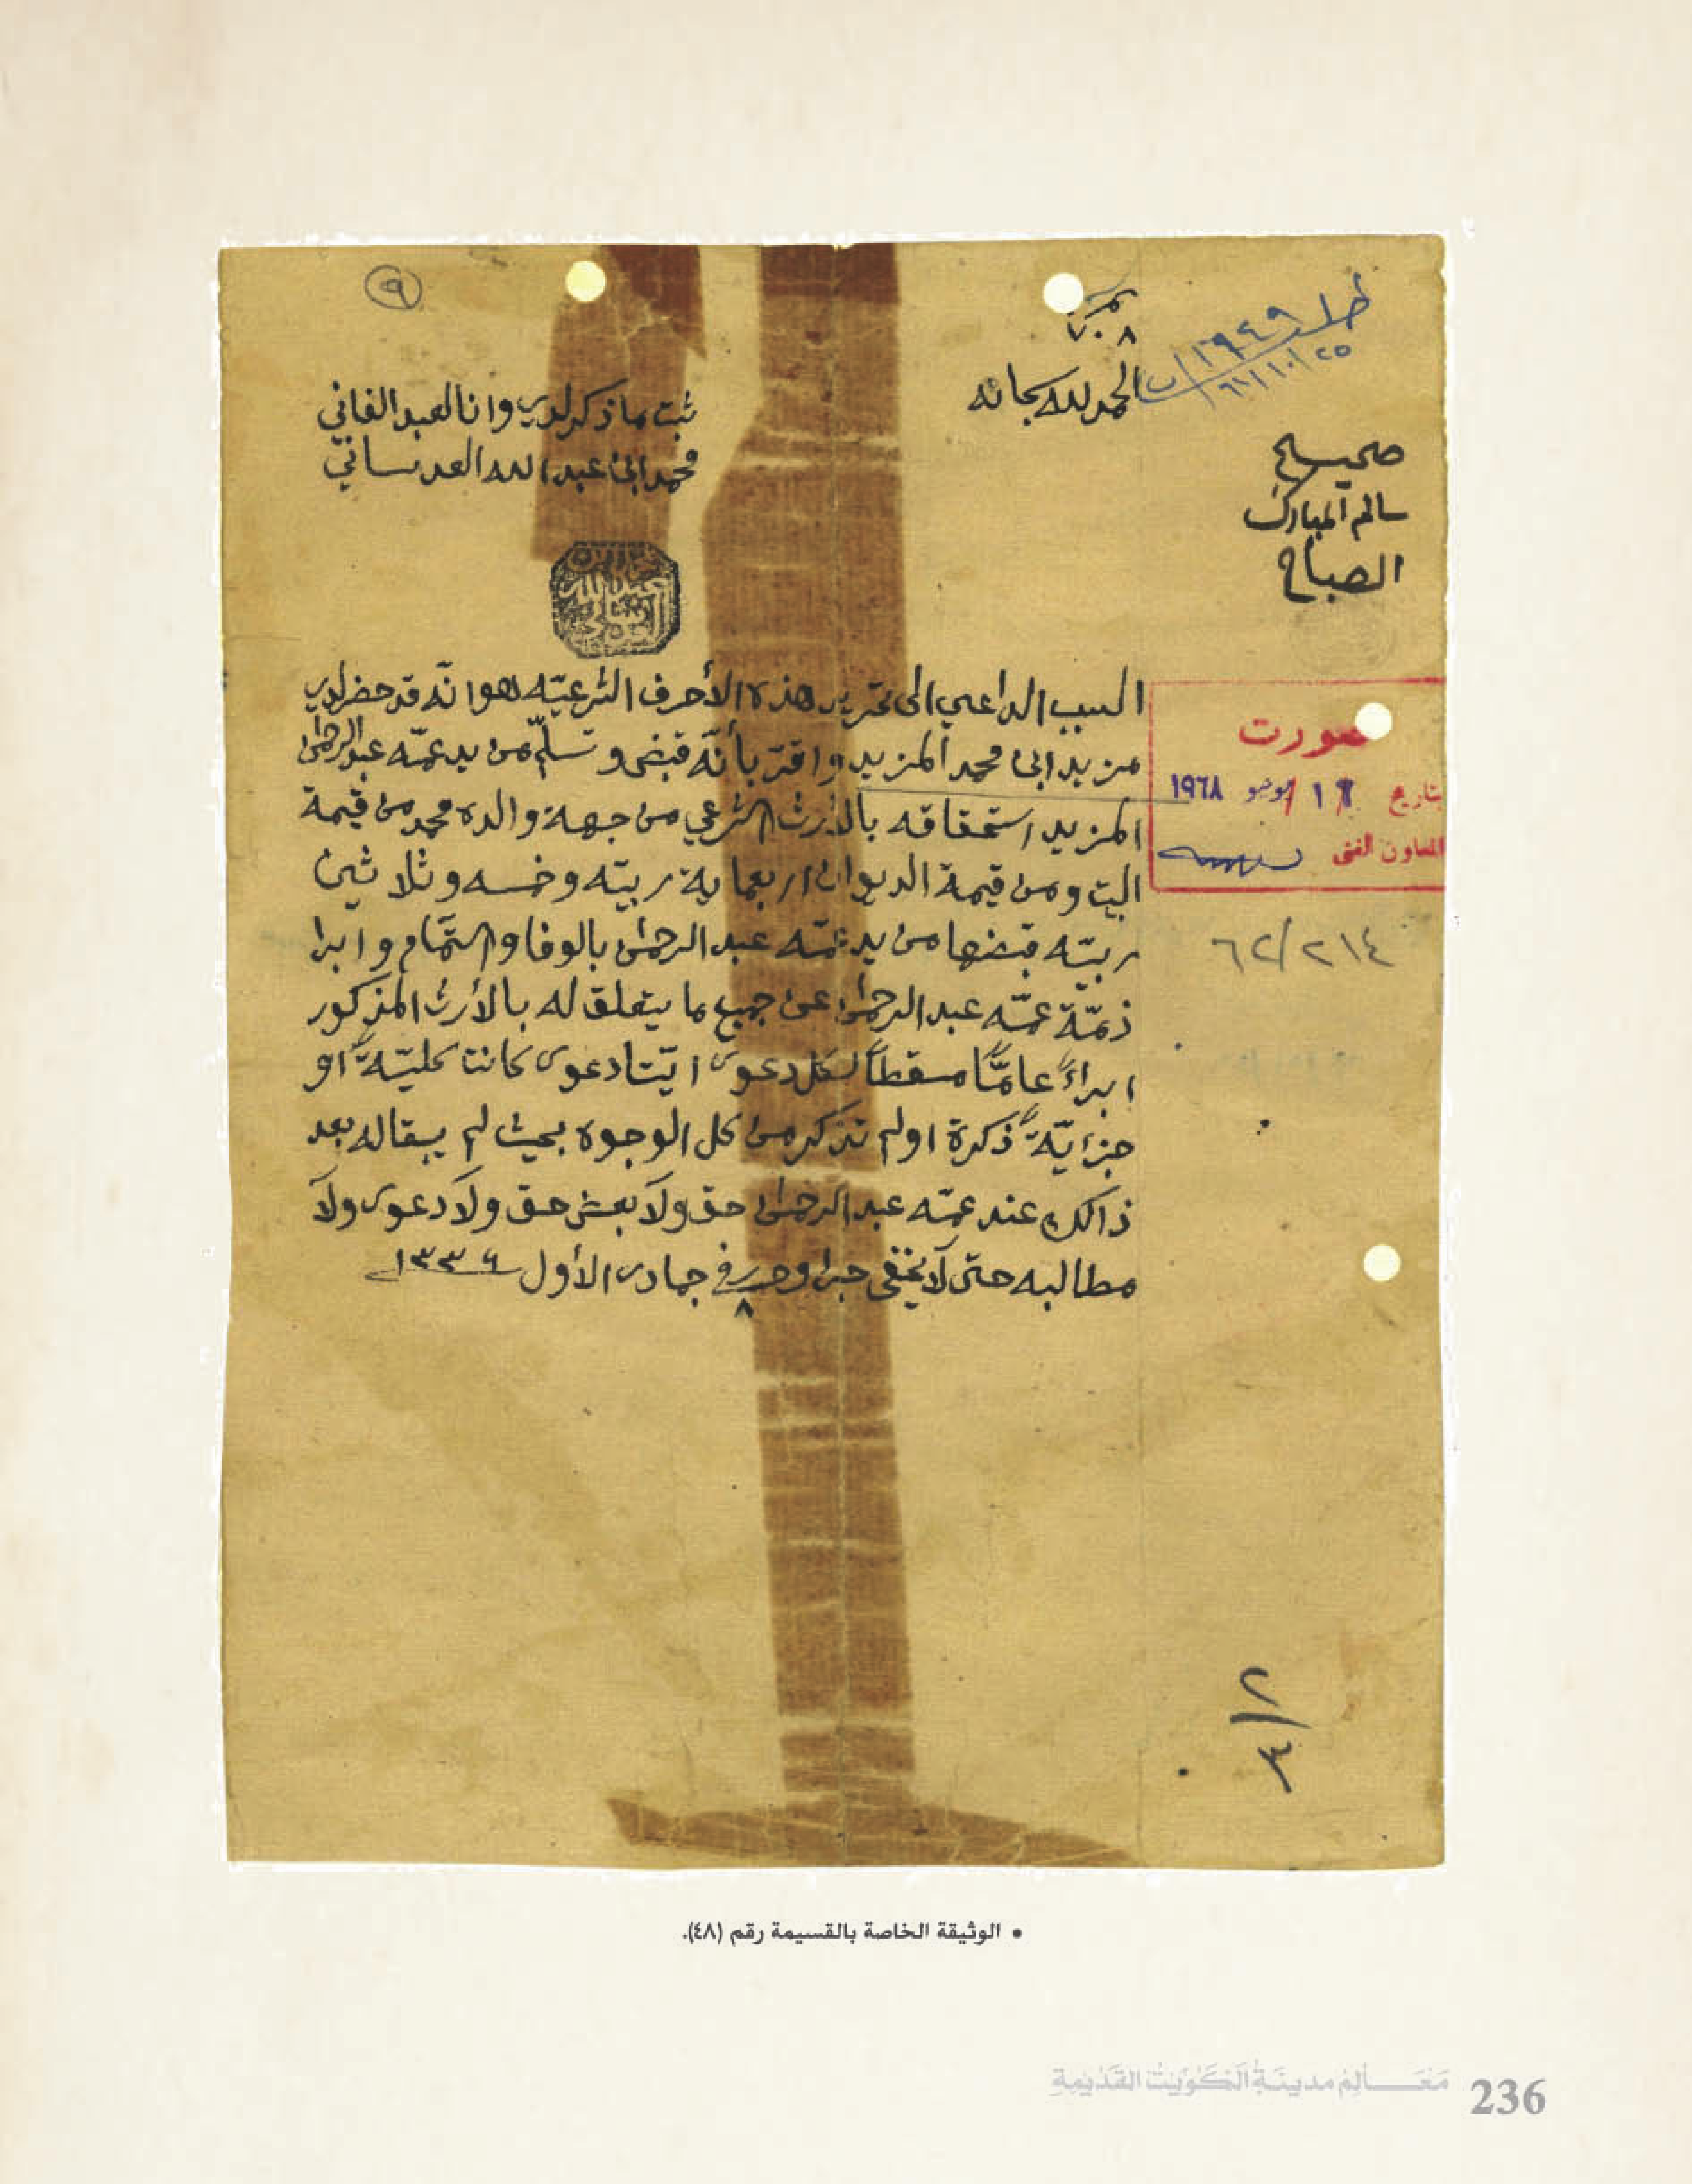 ٩
نمرة
٧٠٨
طلب ١٩٤٩
٢٥/١٠/٦١
الحمد لله سبحانه
ثبت ما ذكر لدي وانا العبد الفاني
محمد ابن عبد الله العدساني
صحيح
سالم المبارك
الصباح
السبب الداعي الى تحرير هذه الأحرف الشرعيّه هو انّه قد حضر لدي
مزيد ابن محمد المزيد واقرّ بأنّه قبض وتسلّم من يد عمّه عبد الرحمن
المزيد استحقاقه بالأرث الشرعي من جهة والده محمد من قيمة
البيت ومن قيمة الديوان اربعماية ربيّه وخمسه وثلاثين
ربيّه قبضها من يد عمّه عبد الرحمن بالوفا والتّمام وابرا
ذمّة عمّه عبد الرحمن عن جميع ما يتعلق له بالأرث المذكور
ابراءً عامًّا مسقطاً لكل دعوى ايّتا دعوى كانت كليّةً او
جزايّةً ذكرة او لم تذكر من كل الوجوه بحيث لم يبقا له بعد
ذالك عند عمّه عبد الرحمن حق ولا بعض حق ولا دعوى ولا
مطالبه حتى لا يخفى جرا وحرر في ٨ جمادى الأول ١٣٣٦
صورت
بتاريخ ١٩٦٨
المعاون الفني
٦٢/٢١٤
٢/٤
• الوثيقة الخاصة بالقسيمة رقم (٤٨).
مَعَالِمُ مدينَةِ الكُوَيْتْ القَدْيمِةِ
236